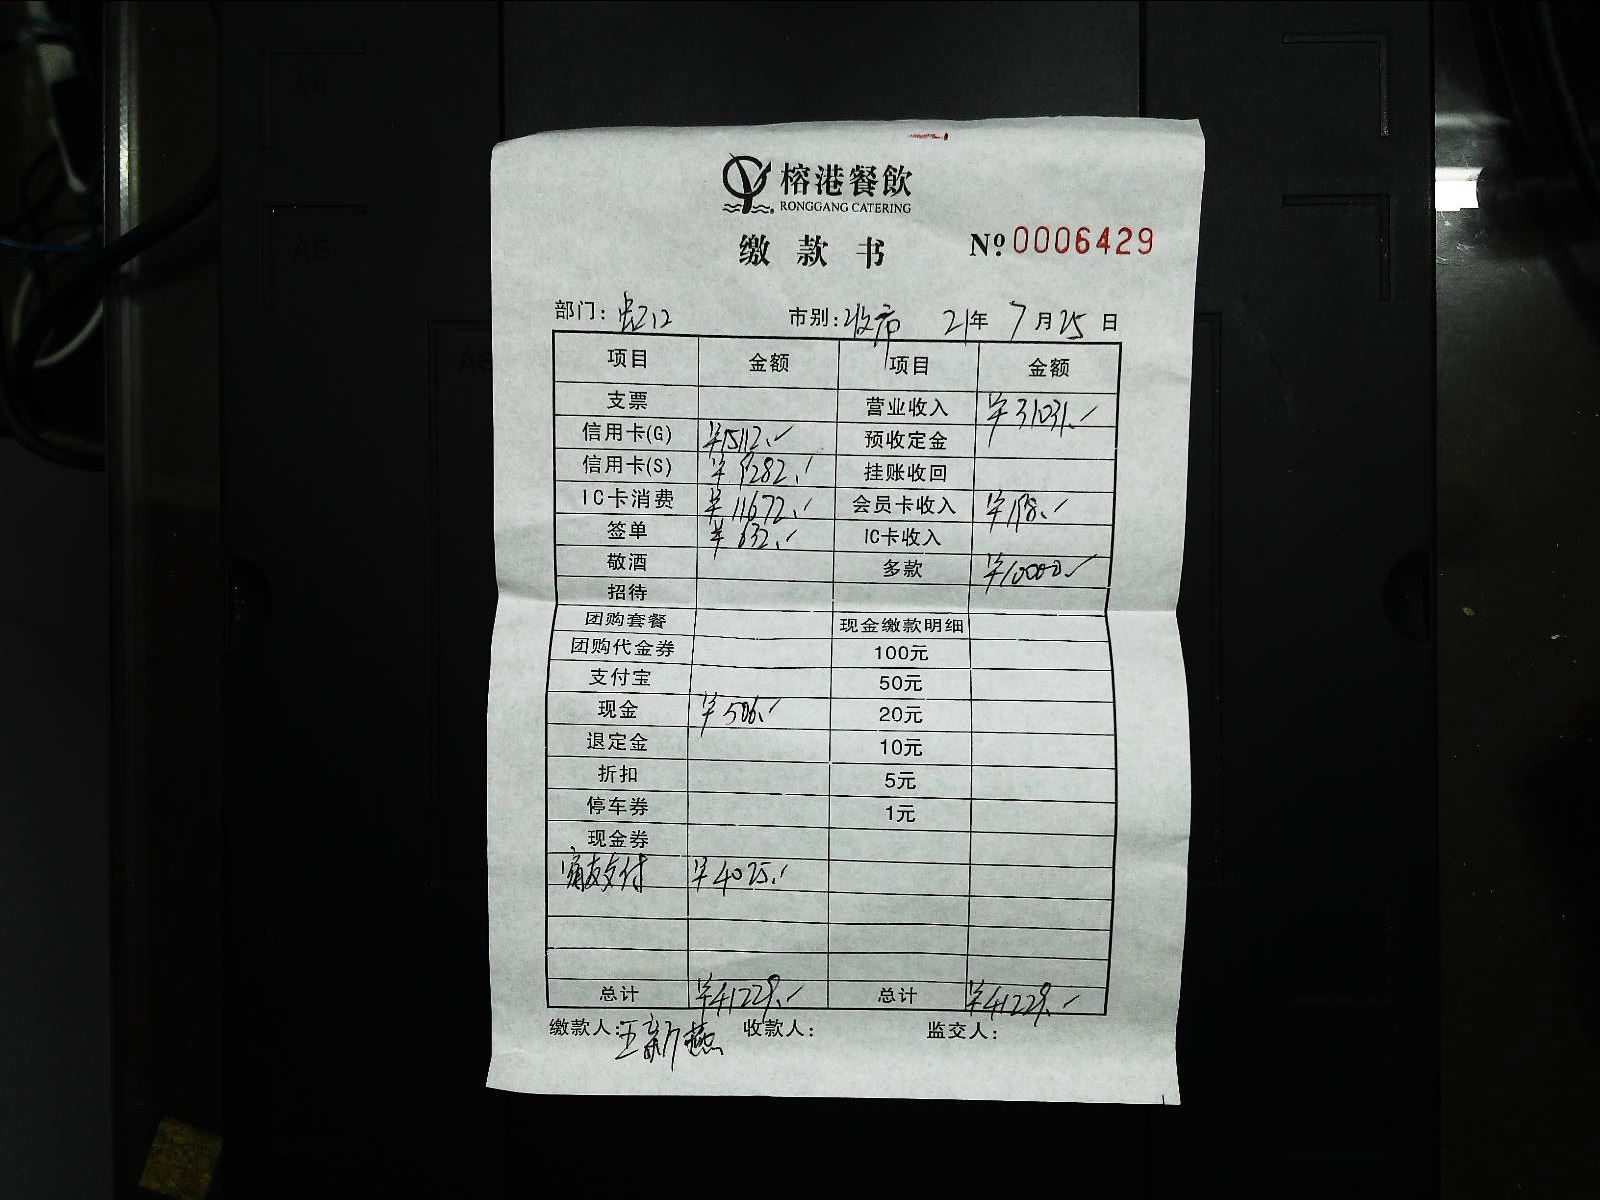 榕港餐飲
RONGGANG CATERING
缴款书 № 0006429
部门: 虹口 市别: 收市 21年 7月25日
项目 金额 项目 金额
支票 营业收入 ¥31031.
信用卡(G) ¥15112. 预收定金
信用卡(S) ¥9282. 挂账收回
IC卡消费 ¥11672. 会员卡收入 ¥198.
签单 ¥632. IC卡收入
敬酒 多款 ¥10000
招待
团购套餐 现金缴款明细
团购代金券 100元
支付宝 50元
现金 ¥506. 20元
退定金 10元
折扣 5元
停车券 1元
现金券
支付 ¥4025.
总计 ¥41229. 总计 ¥41229.
缴款人: 王新燕 收款人: 监交人:
A5
A6